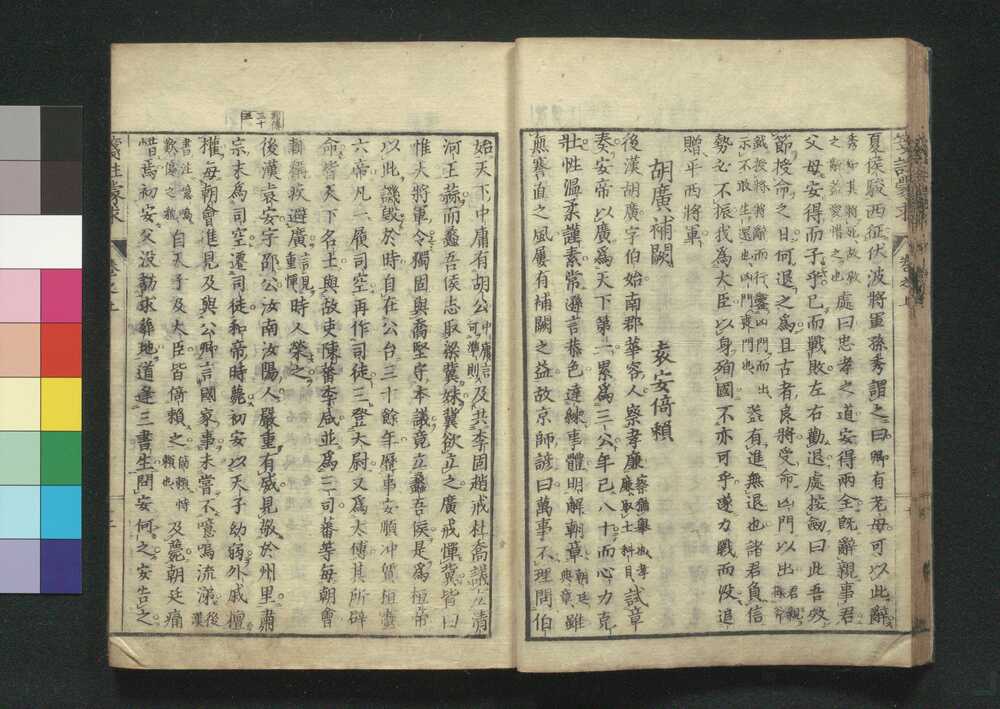 夏侯駿西征伏波將軍孫秀謂之曰卿有老母可以此辭
秀知其將死故敢之辭若愛惜之也處曰忠孝之道安得兩全旣辭親事君
父母安得而子乎已而戰敗左右勸退處按劒曰此吾效
節授命之日何退之爲且古者良將受命凶門以出
蓋有進無退也諸君負信
勢必不振我爲大臣以身殉國不亦可乎遂力戰而歿追
贈平西將軍
胡廣補闕　袁安倚賴
後漢胡廣字伯始南郡華容人察孝廉試章
奏安帝以廣爲天下第一累爲三公年已八十而心力克
壯性溫柔謹素常遜言恭色達練事體明解朝章雖
無謇直之風屢有補闕之益故京師諺曰萬事不理問伯
始天下中庸有胡公及共李固趙戒杜喬議立清
河王蒜而蠡吾侯志取梁冀妹冀欲立之廣戒憚冀皆曰
惟大將軍令獨固與喬堅守本議竟立蠡吾侯是爲桓帝
以此譏毀於時自在公台三十餘年歷事安順冲質桓靈
六帝凡一履司空再作司徒三登太尉又爲太傅其所辟
命皆天下名士與故吏陳蕃李咸並爲三司蕃等每朝會
輙稱疾避廣時人榮之
後漢袁安字邵公汝南汝陽人嚴重有威見敬於州里肅
宗末爲司空遷司徒和帝時薨初安以天子幼弱外戚擅
權每朝會進見及與公卿言國家事未嘗不噫嗚流涕
自天子及大臣皆倚賴之及薨朝廷痛
惜焉初安父沒訪求葬地道逢三書生問安何之安告之
箋註蒙求　卷之上